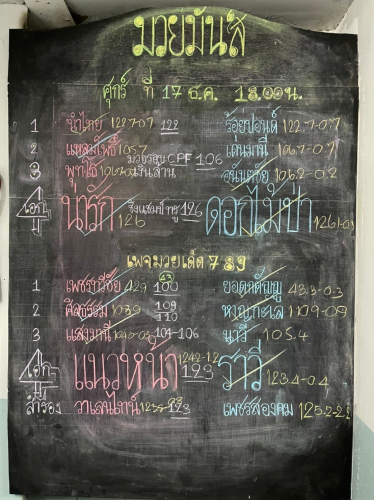 มวยมันส์
ศุกร์ ที่ 17 ธ.ค. 18.00น.
1 ขำไทย 122.7-0.7 122 ร้อยปอนด์ 122.7-0.7
2 แหลมโพธิ์ 105.7 มวยรอบ CPF 106 เด่นมานี 106.7-0.7
3 พุทโธ เงินล้าน อนันตชัย 106.2-0.2
เอก น่ารัก 126 ชิงแชมป์ ทรู 126 ดอกไม้ป่า 126.1-0.1
เพจมวยเด็ด 789
1 เพชรทวีชัย 100 ยอดกตัญญู
2 ศิลธรรม 109 110 หงษ์ทะเล 110.9-0.9
3 แสงมานี 104-106 นาวี 105.4
เอก แนวหน้า 124.2-1.2 123 ราวี่ 123.4-0.4
สำรอง วาเลนไทน์ 123 เพชรสองคม